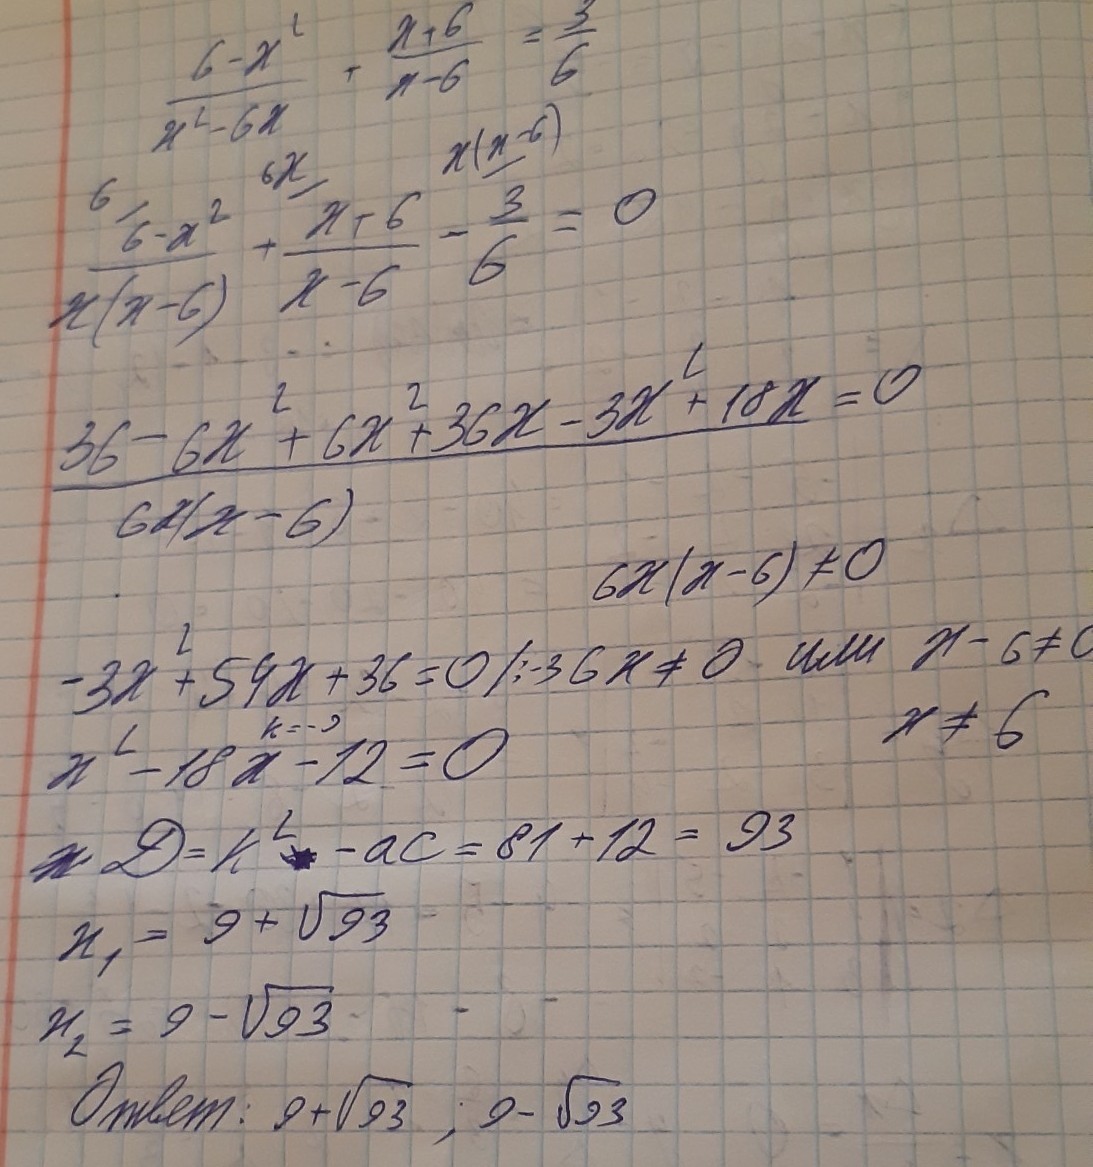 (6-x²)/(x²-6x) + (x+6)/(x-6) = 3/6
6/ 6x/ x(x-6)
(6-x²)/(x(x-6)) + (x+6)/(x-6) - 3/6 = 0
(36-6x²+6x²+36x-3x²+18x)/(6x(x-6)) = 0
6x(x-6)≠0
-3x²+54x+36=0 /:-3 6x≠0 или x-6≠0
x≠6
k=-9
x²-18x-12=0
D=k²-ac=81+12=93
x₁ = 9+√93
x₂ = 9-√93
Ответ: 9+√93 ; 9-√93